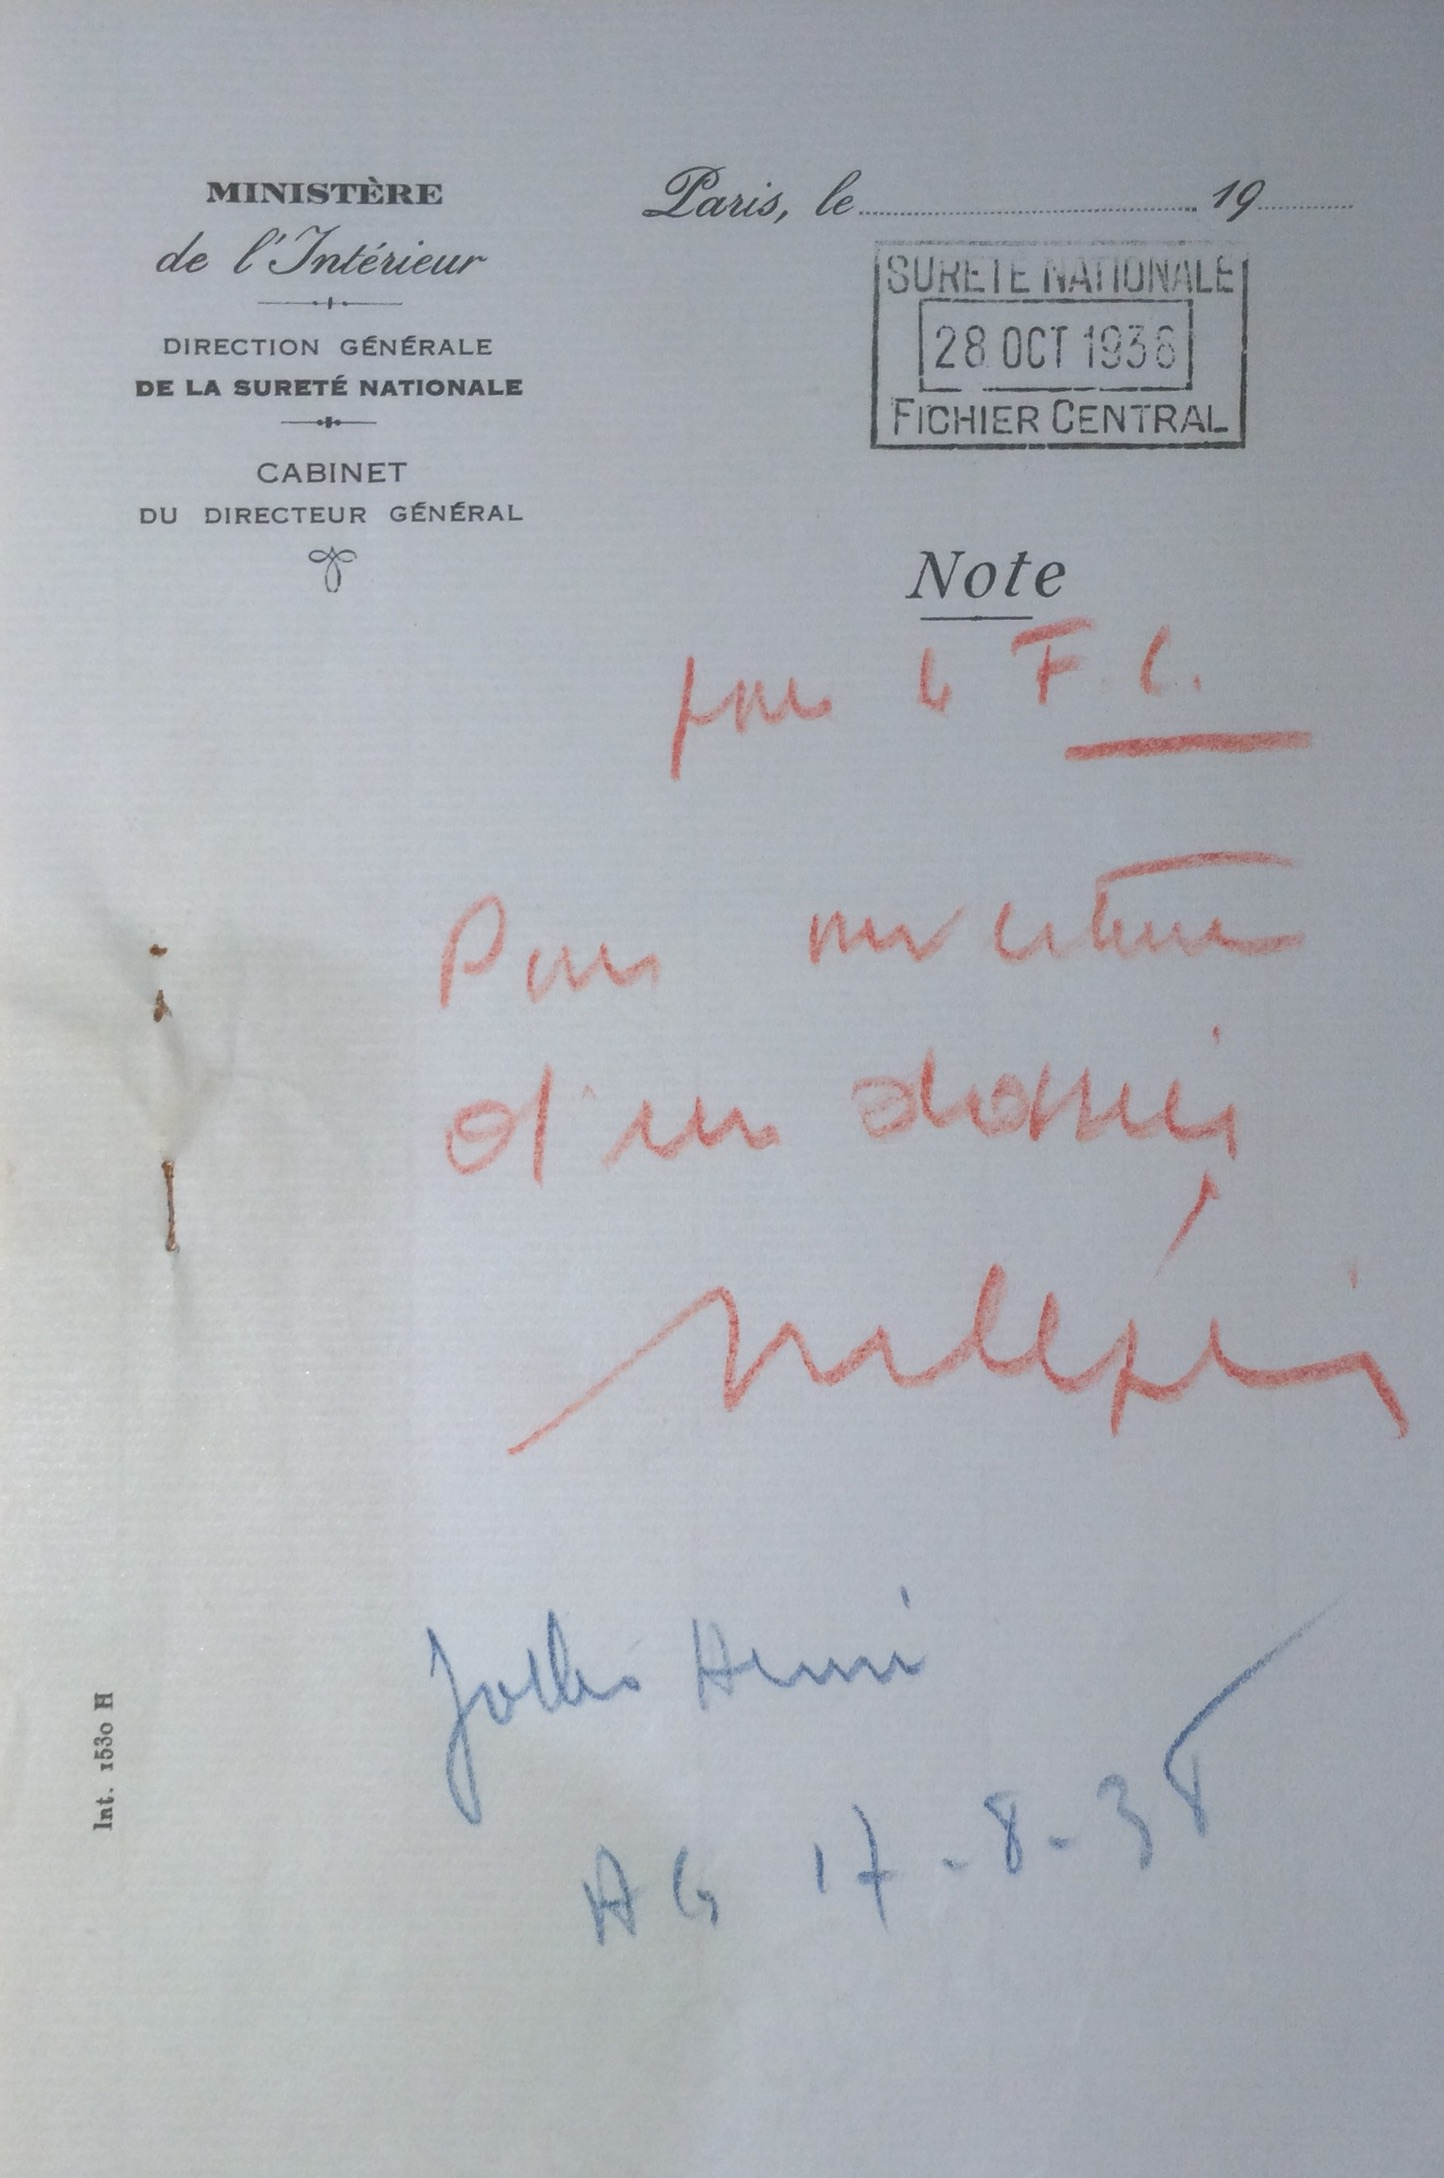 MINISTÈRE
de l'Intérieur
DIRECTION GÉNÉRALE
DE LA SURETÉ NATIONALE
CABINET
DU DIRECTEUR GÉNÉRAL
Paris, le 19
SURETE NATIONALE
28 OCT 1936
FICHIER CENTRAL
Note
pour le F.C.
Pour ouverture
d'un dossier
Henri
AG 17-8-38
Int. 1530 H